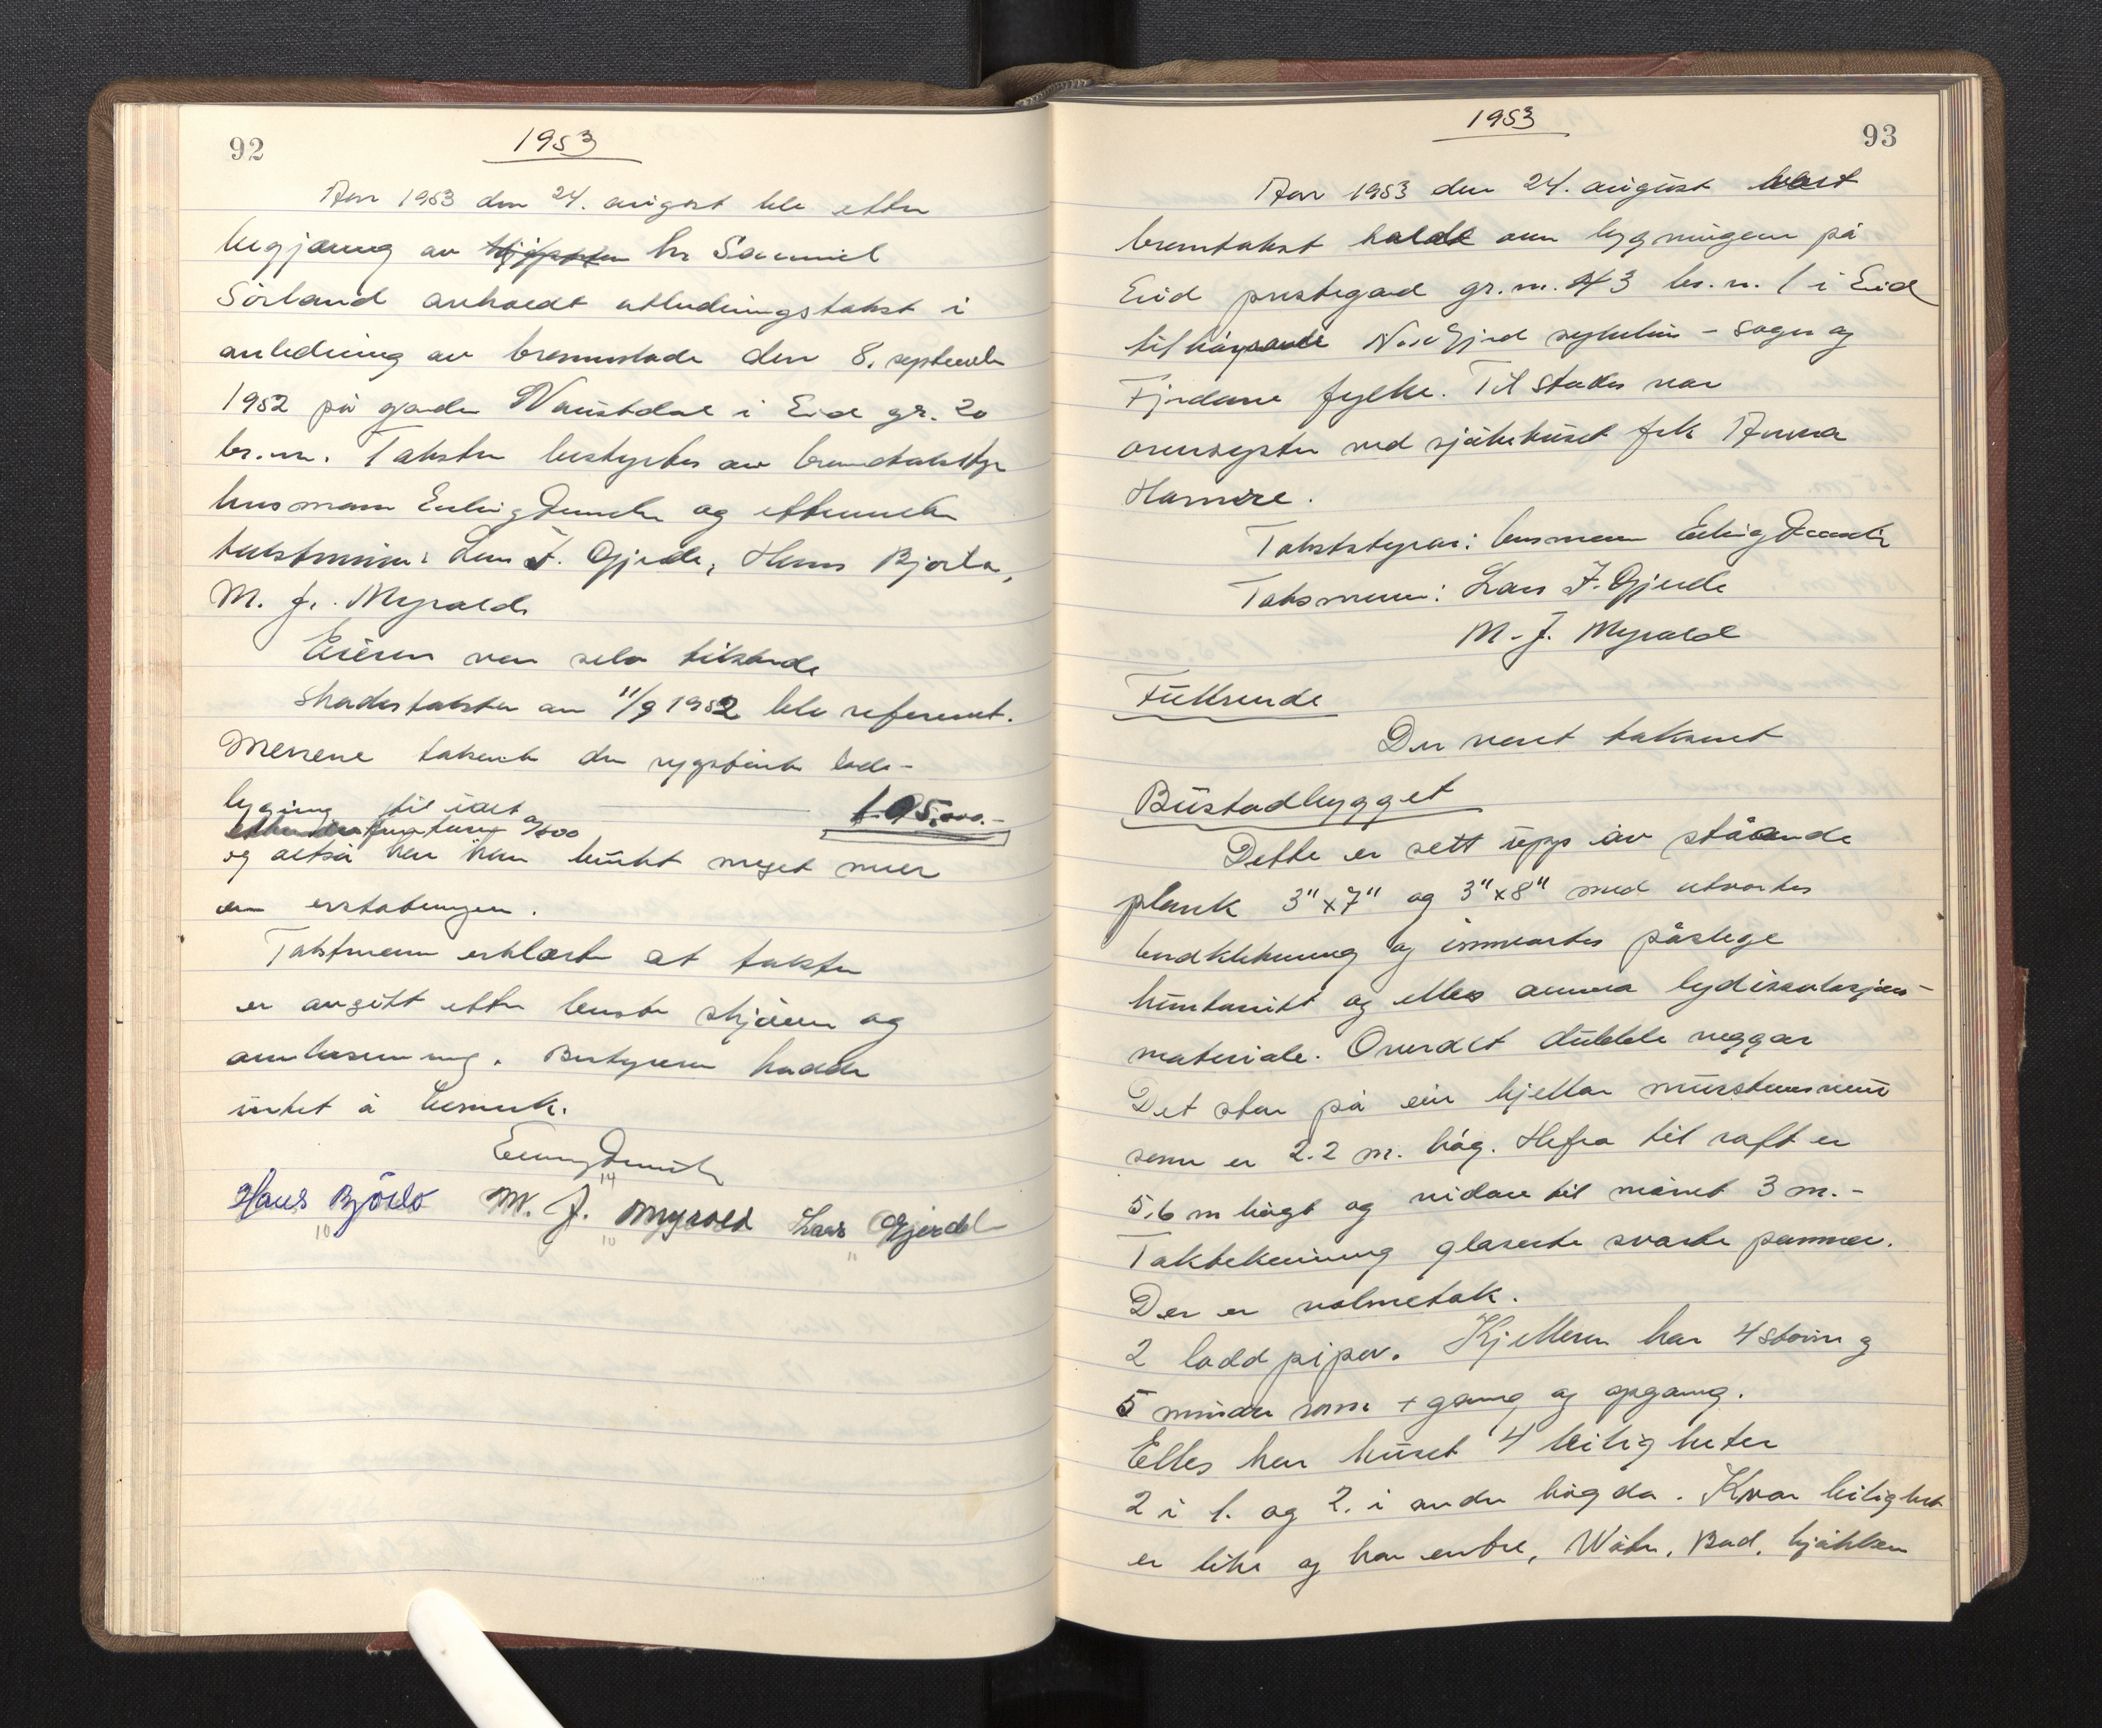 92
1953
Aar 1953 den 24. august ble etter
begjæring av hr Samuel
Sörland avholdt utbedringstakst i
anledning av brannskade den 8. september
1952 på garden Naustdal i Eid gr. 20
br.nr. Taksten bestyrtes av branntakstbestyr
lensmann og ettenevnte
takstmenn: Lars J. Gjerde, Hans Bjørlo,
M. J. Myrold
Eieren var selv tilstede
Skadestaksten av 11/9 1952 ble referert.
Mennene takserte den nygsbeint lade-
bygning til idet
1.95,000.-
og altså har han bankt meget mer
en erstatningen.
Takstmenn erklærte at taksten
er avgitt etter beste skjönn og
overbevisning. Bestyreren hadde
intet å bemerk.
Hans Björlo M. J. Myrold Lars Gjerdel
10 14 10 11
93
1953
Aar 1953 den 24. august vart
branntakst haldt over bygningen på
Eid prestegard gr.nr. 43 br.nr. 1 i Eid
tilhöyrande Nordfjord sykehus - Sogn og
Fjordane fylke. Til stades var
oversyster ved sjukehuset frk Anna
Hamre.
Takststyrar: lensmann
Taksmenn: Lars J. Gjerde
M. J. Myrold
Fullsende
Der vart taksert
Bustadbygget
Dette er sett upp av ståande
plank 3"x7" og 3"x8" med utvortes
bordkledning og innvortes påslege
huntonitt og elles anna lydisolasjons-
materiale. Overalt dubble veggar
Det star på ein kjellar murstensmur
som er 2.2 m. høg. Herfra til raft er
5,6 m högt og vidare til mönet 3 m.-
Taktekning glaserte svarte pannner.
Der er valmetak.
2 lodd piper. Kjelleren har 4 störr og
5 mindre rom + gang og opgang.
Elles har huset 4 leiligheter
2 i 1. og 2. i andre högda. Kvar leilighet
er like og har entre, Wåtr, Bad, kjökken